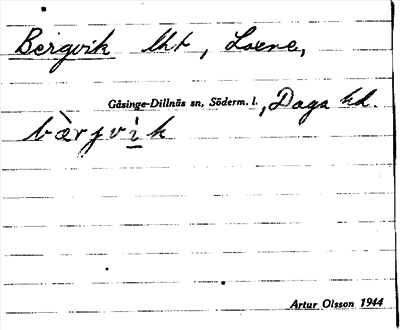 Bergvik lht, Loene,
Gåsinge-Dillnäs sn, Söderm. l., Daga hd.
bæ̀rjvìk
Artur Olsson 1944